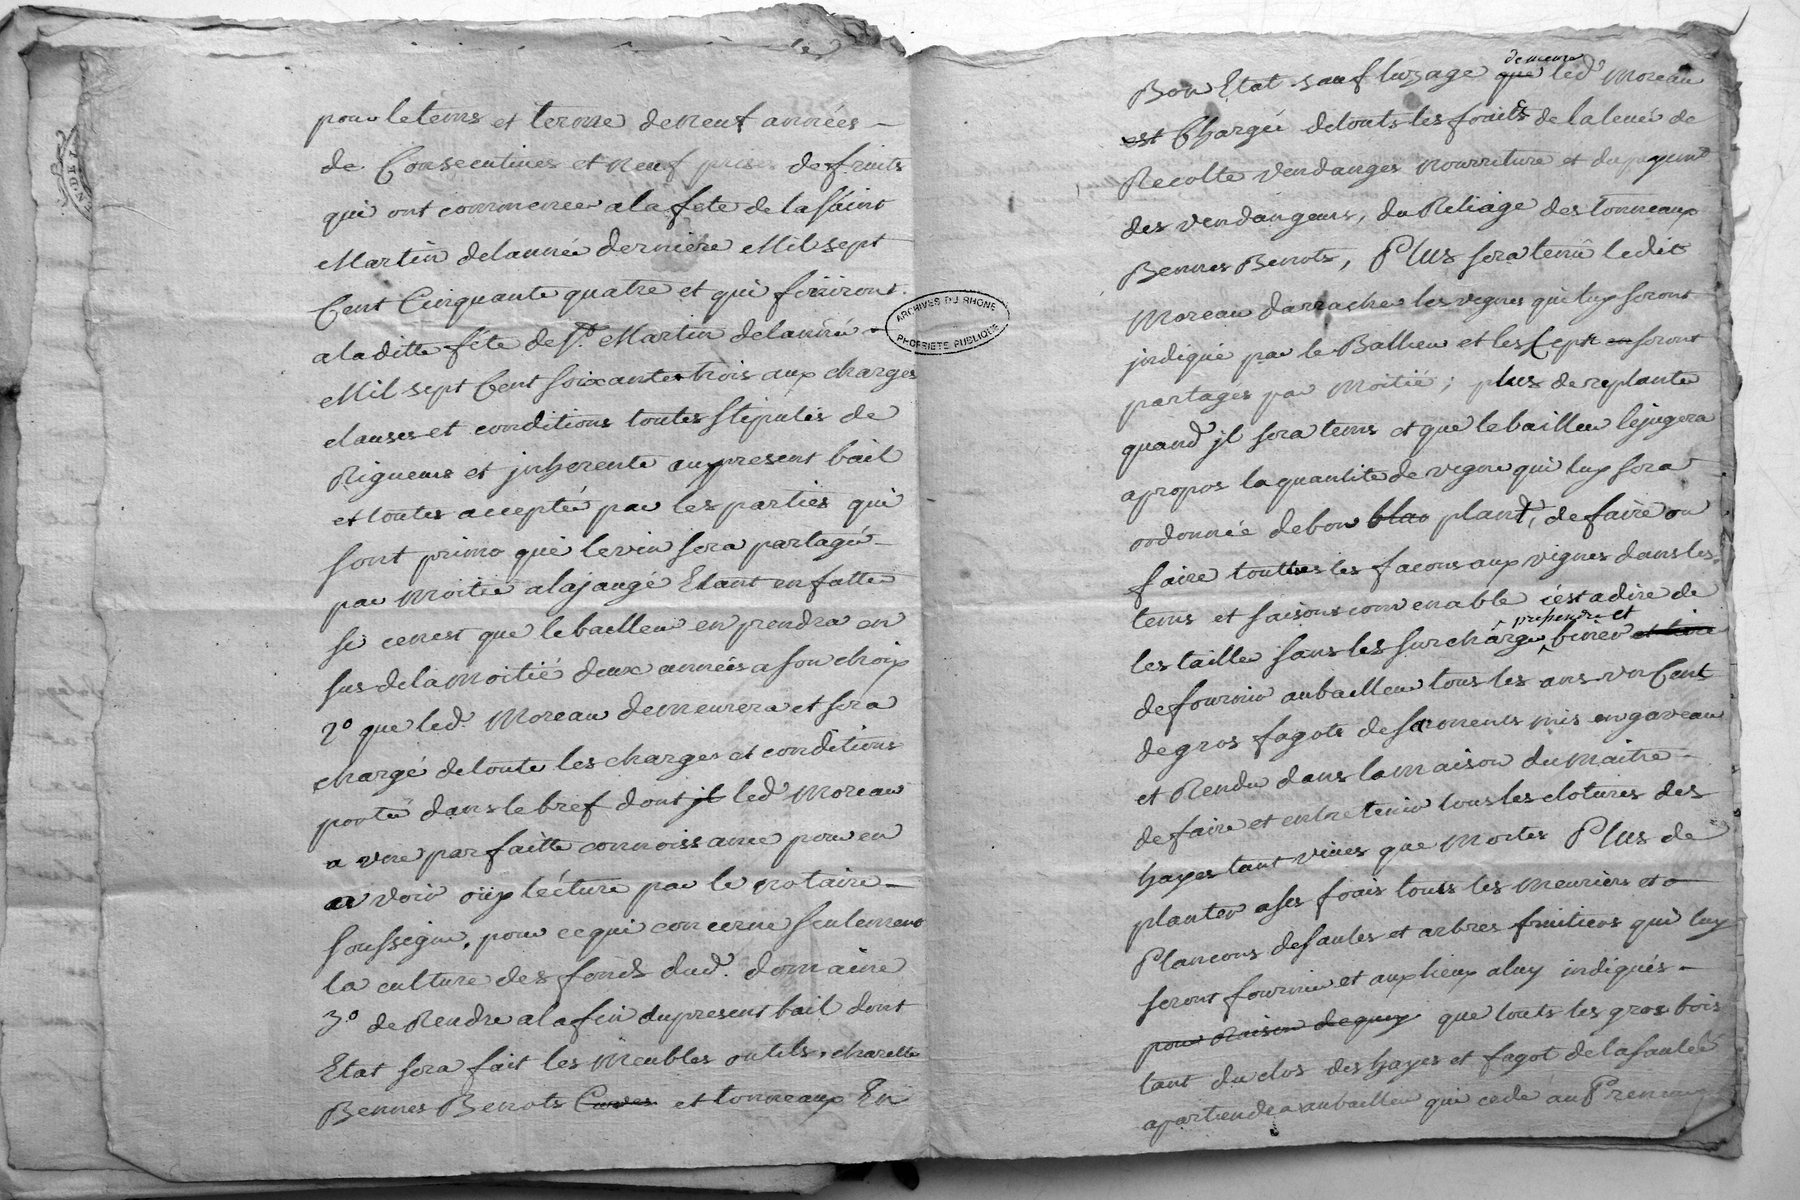 pour le tems et terme de neuf années
de Consecutives et neuf prises de fruits
qui ont commencer a la fete de la Saint
Martin de lannée derniere Mil sept
Cent Cinquante quatre et qui finiront
a la ditte fête de St. Martin de lannée
Mil sept Cent soixante trois aux charges
clauses et conditions toutes stipulés de
Rigueurs et jnherente au present bail
et toutes acceptée par les parties qui
sont primo que le vin sera partagé
par Moitié a la jaugé Etant en
si ce nest que le bailleur en prendra en
sus de la Moitié deux années a son choix
2º que led. Moreau demeurera et sera
chargé de toute les charges et conditions
portée dans le bref dont jl led. Moreau
a une parfaitte connoissance pour en
avoir oüy lécture par le notaire
soussigné, pour ce qui concerne seulement
la culture des fonds dud. domaine
3º de Rendre a la fin du present bail dont
Etat sera fait les Meubles outils, charette
Bennes Benots Cuves et tonneaux En
ARCHIVES DU RHONE
PROPRIÉTÉ PUBLIQUE
Bon Etat sauf luzage que demeure led. Moreau
est Chargée de touts les fraits & de la levée de
Recolte vendanges nourriture et du payemt
des vendangeurs, du Reliage des tonneaux
Bennes Benots, Plus sera tenû ledit
Moreau darracher les vignes qui luy seront
jndiqué par le Bailleur et les Ceps en seront
partagés par Moitié; plus de replanter
quand jl sera tems et que le bailleur le jugera
apropos la quantite de vigne qui luy sera
ordonnée de bon blan plant, de faire ou
faire touttes les facons aux vignes dans les
tems et saisons convenable cèst a dire de
les tailler sans les surcharger, et biner et
de fournir au bailleur tous les ans un Cent
de gros fagots de sarments mis en gaveau
et Rendu dans la maison du maitre
de faire et entretenir tous les clotures des
hayes tant vives que Mortes Plus de
planter a ses frais tous les Meuriers et
Plancons de saules et arbres fruitiers qui luy
seront fournie et aux lieux a luy indiqués
pour Raison de quoy que touts les gros bois
tant du clos des hayes et fagot de la saulée
apartiendra au bailleur qui cede au Preneur